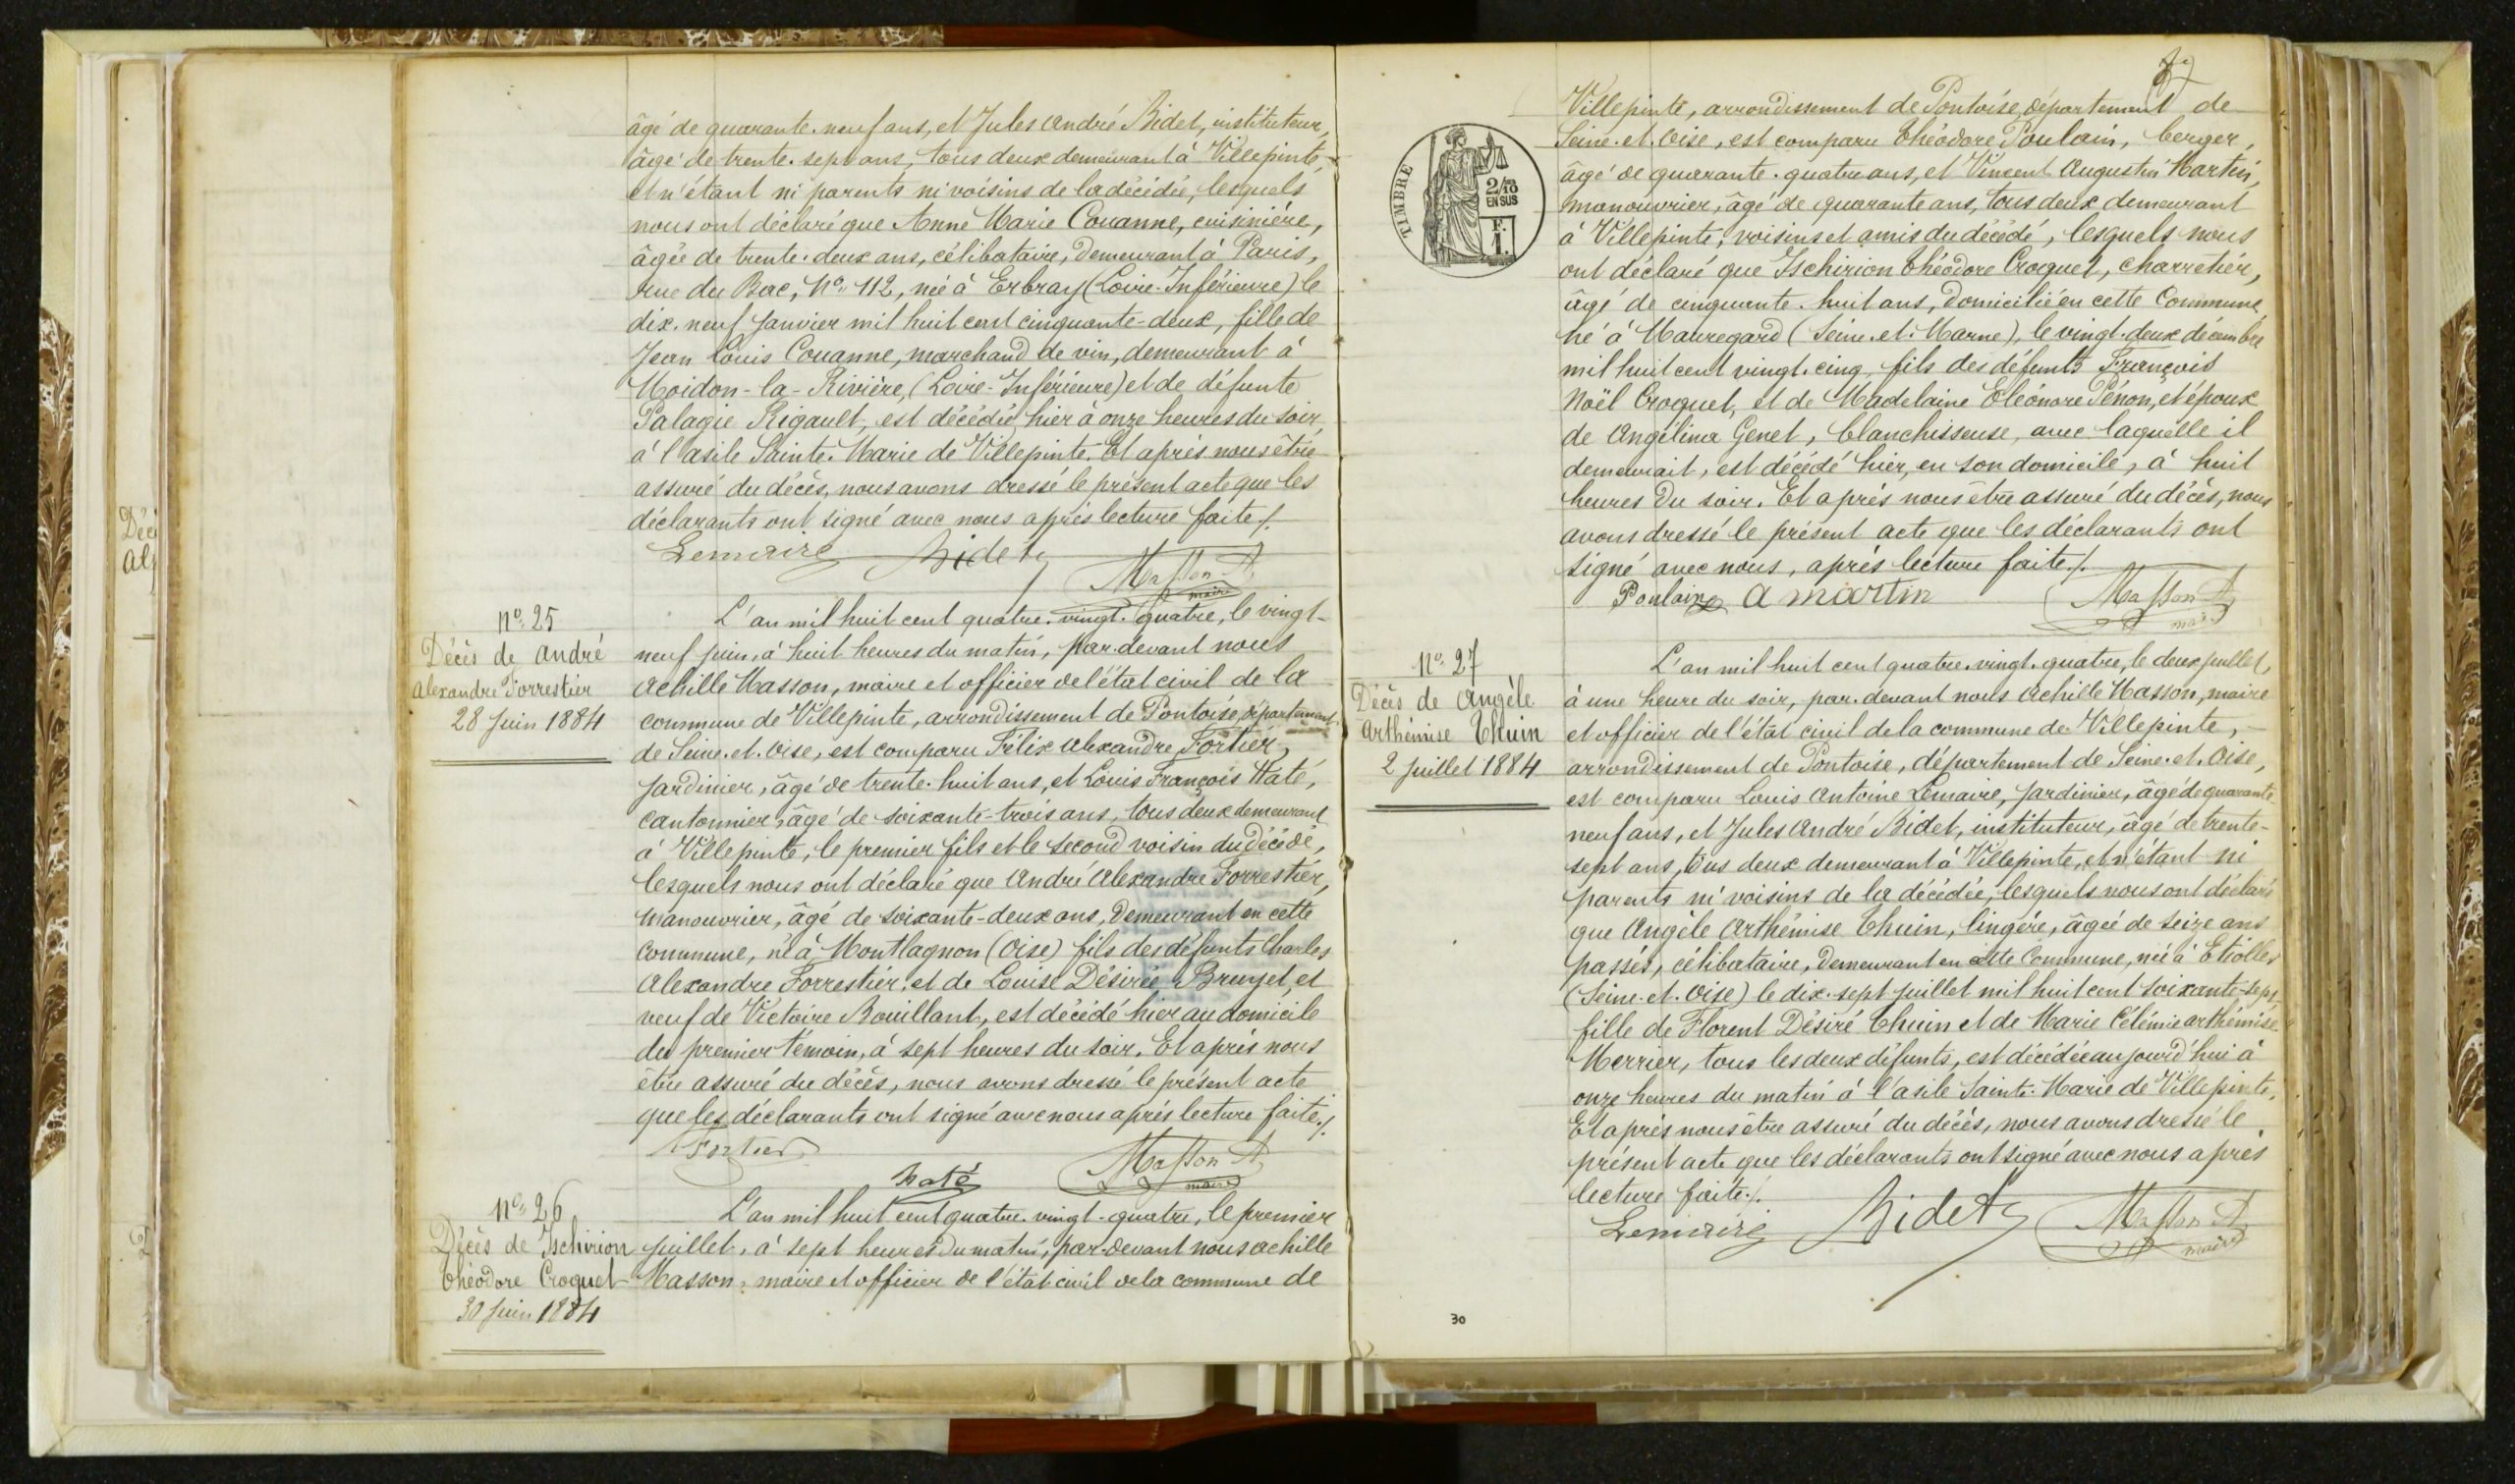 âgé de quarante-neuf ans, et Jules André Bidet, instituteur,
âgé de trente-sept ans, tous deux demeurant à Villepinte,
et n'étant ni parents ni voisins de la décédée, lesquels
nous ont déclaré que Anne Marie Couanne, cuisinière,
âgée de trente-deux ans, célibataire, demeurant à Paris,
rue du Bac, No 112, née à Erbray (Loire-Inférieure) le
dix-neuf Janvier mil huit cent cinquante-deux, fille de
Jean Louis Couanne, marchand de vin, demeurant à
Moidon-la-Rivière, (Loire-Inférieure) et de défunte
Palagie Rigault, est décédée hier à onze heures du soir,
à l'asile Sainte-Marie de Villepinte. Et après nous être
assuré du décès, nous avons dressé le présent acte que les
déclarants ont signé avec nous après lecture faite /.
Lemaire Bidet
Masson A
maire
No 25
Décès de André
Alexandre Forrestier
28 Juin 1884
L'an mil huit cent quatre-vingt-quatre, le vingt-
neuf juin, à huit heures du matin, par-devant nous
Achille Masson, maire et officier de l'état civil de la
commune de Villepinte, arrondissement de Pontoise, département
de Seine-et-Oise, est comparu Félix Alexandre Fortier,
Jardinier, âgé de trente-huit ans, et Louis François Haté,
Cantonnier, âgé de soixante-trois ans, tous deux demeurant
à Villepinte, le premier fils et le second voisin du décédé,
lesquels nous ont déclaré que André Alexandre Forrestier,
manouvrier, âgé de soixante-deux ans, demeurant en cette
commune, né à Montlagnon (Oise) fils des défunts Charles
Alexandre Forrestier et de Louise Désirée Bruyet, et
veuf de Victoire Bouillant, est décédé hier au domicile
du premier témoin, à sept heures du soir. Et après nous
être assuré du décès, nous avons dressé le présent acte
que les déclarants ont signé avec nous après lecture faite /.
Fortier
haté
Masson A
maire
No 26
Décès de Ischirion
Théodore Croquet
30 Juin 1884
L'an mil huit cent quatre-vingt-quatre, le premier
juillet, à sept heures du matin, par-devant nous Achille
Masson, maire et officier de l'état civil de la commune de
37
TIMBRE
2/10
EN SUS
F.
1.
Villepinte, arrondissement de Pontoise, département de
Seine-et-Oise, est comparu Théodore Poulain, berger,
âgé de quarante-quatre ans, et Vincent Augustin Martin,
manouvrier, âgé de quarante ans, tous deux demeurant
à Villepinte, voisins et amis du décédé, lesquels nous
ont déclaré que Ischirion Théodore Croquet, charretier,
âgé de cinquante-huit ans, domicilié en cette Commune,
né à Mauregard (Seine-et-Marne), le vingt-deux décembre
mil huit cent vingt-cinq, fils des défunts François
Noël Croquet, et de Madelaine Eléonore Pénon, et époux
de Angélina Genet, blanchisseuse, avec laquelle il
demeurait, est décédé hier, en son domicile, à huit
heures du soir. Et après nous être assuré du décès, nous
avons dressé le présent acte que les déclarants ont
signé avec nous, après lecture faite /.
Poulain A martin
Masson A
maire
No 27
Décès de Angèle
Arthémise Thuin
2 Juillet 1884
L'an mil huit cent quatre-vingt-quatre, le deux juillet,
à une heure du soir, par-devant nous Achille Masson, maire
et officier de l'état civil de la commune de Villepinte,
arrondissement de Pontoise, département de Seine-et-Oise,
est comparu Louis Antoine Lemaire, Jardinier, âgé de quarante
neuf ans, et Jules André Bidet, instituteur, âgé de trente-
sept ans, tous deux demeurant à Villepinte, et n'étant ni
parents ni voisins de la décédée, lesquels nous ont déclaré
que Angèle Arthémise Thuin, lingère, âgée de seize ans
passés, célibataire, demeurant en cette Commune, née à Etiolles
(Seine-et-Oise) le dix-sept juillet mil huit cent soixante-sept
fille de Florent Désiré Thuin et de Marie Célémie arthémise
Merrier, tous les deux défunts, est décédée aujourd'hui à
onze heures du matin à l'asile Sainte-Marie de Villepinte.
Et après nous être assuré du décès, nous avons dressé le
présent acte que les déclarants ont signé avec nous après
lecture faite /.
Lemaire Bidet
Masson A
maire
30